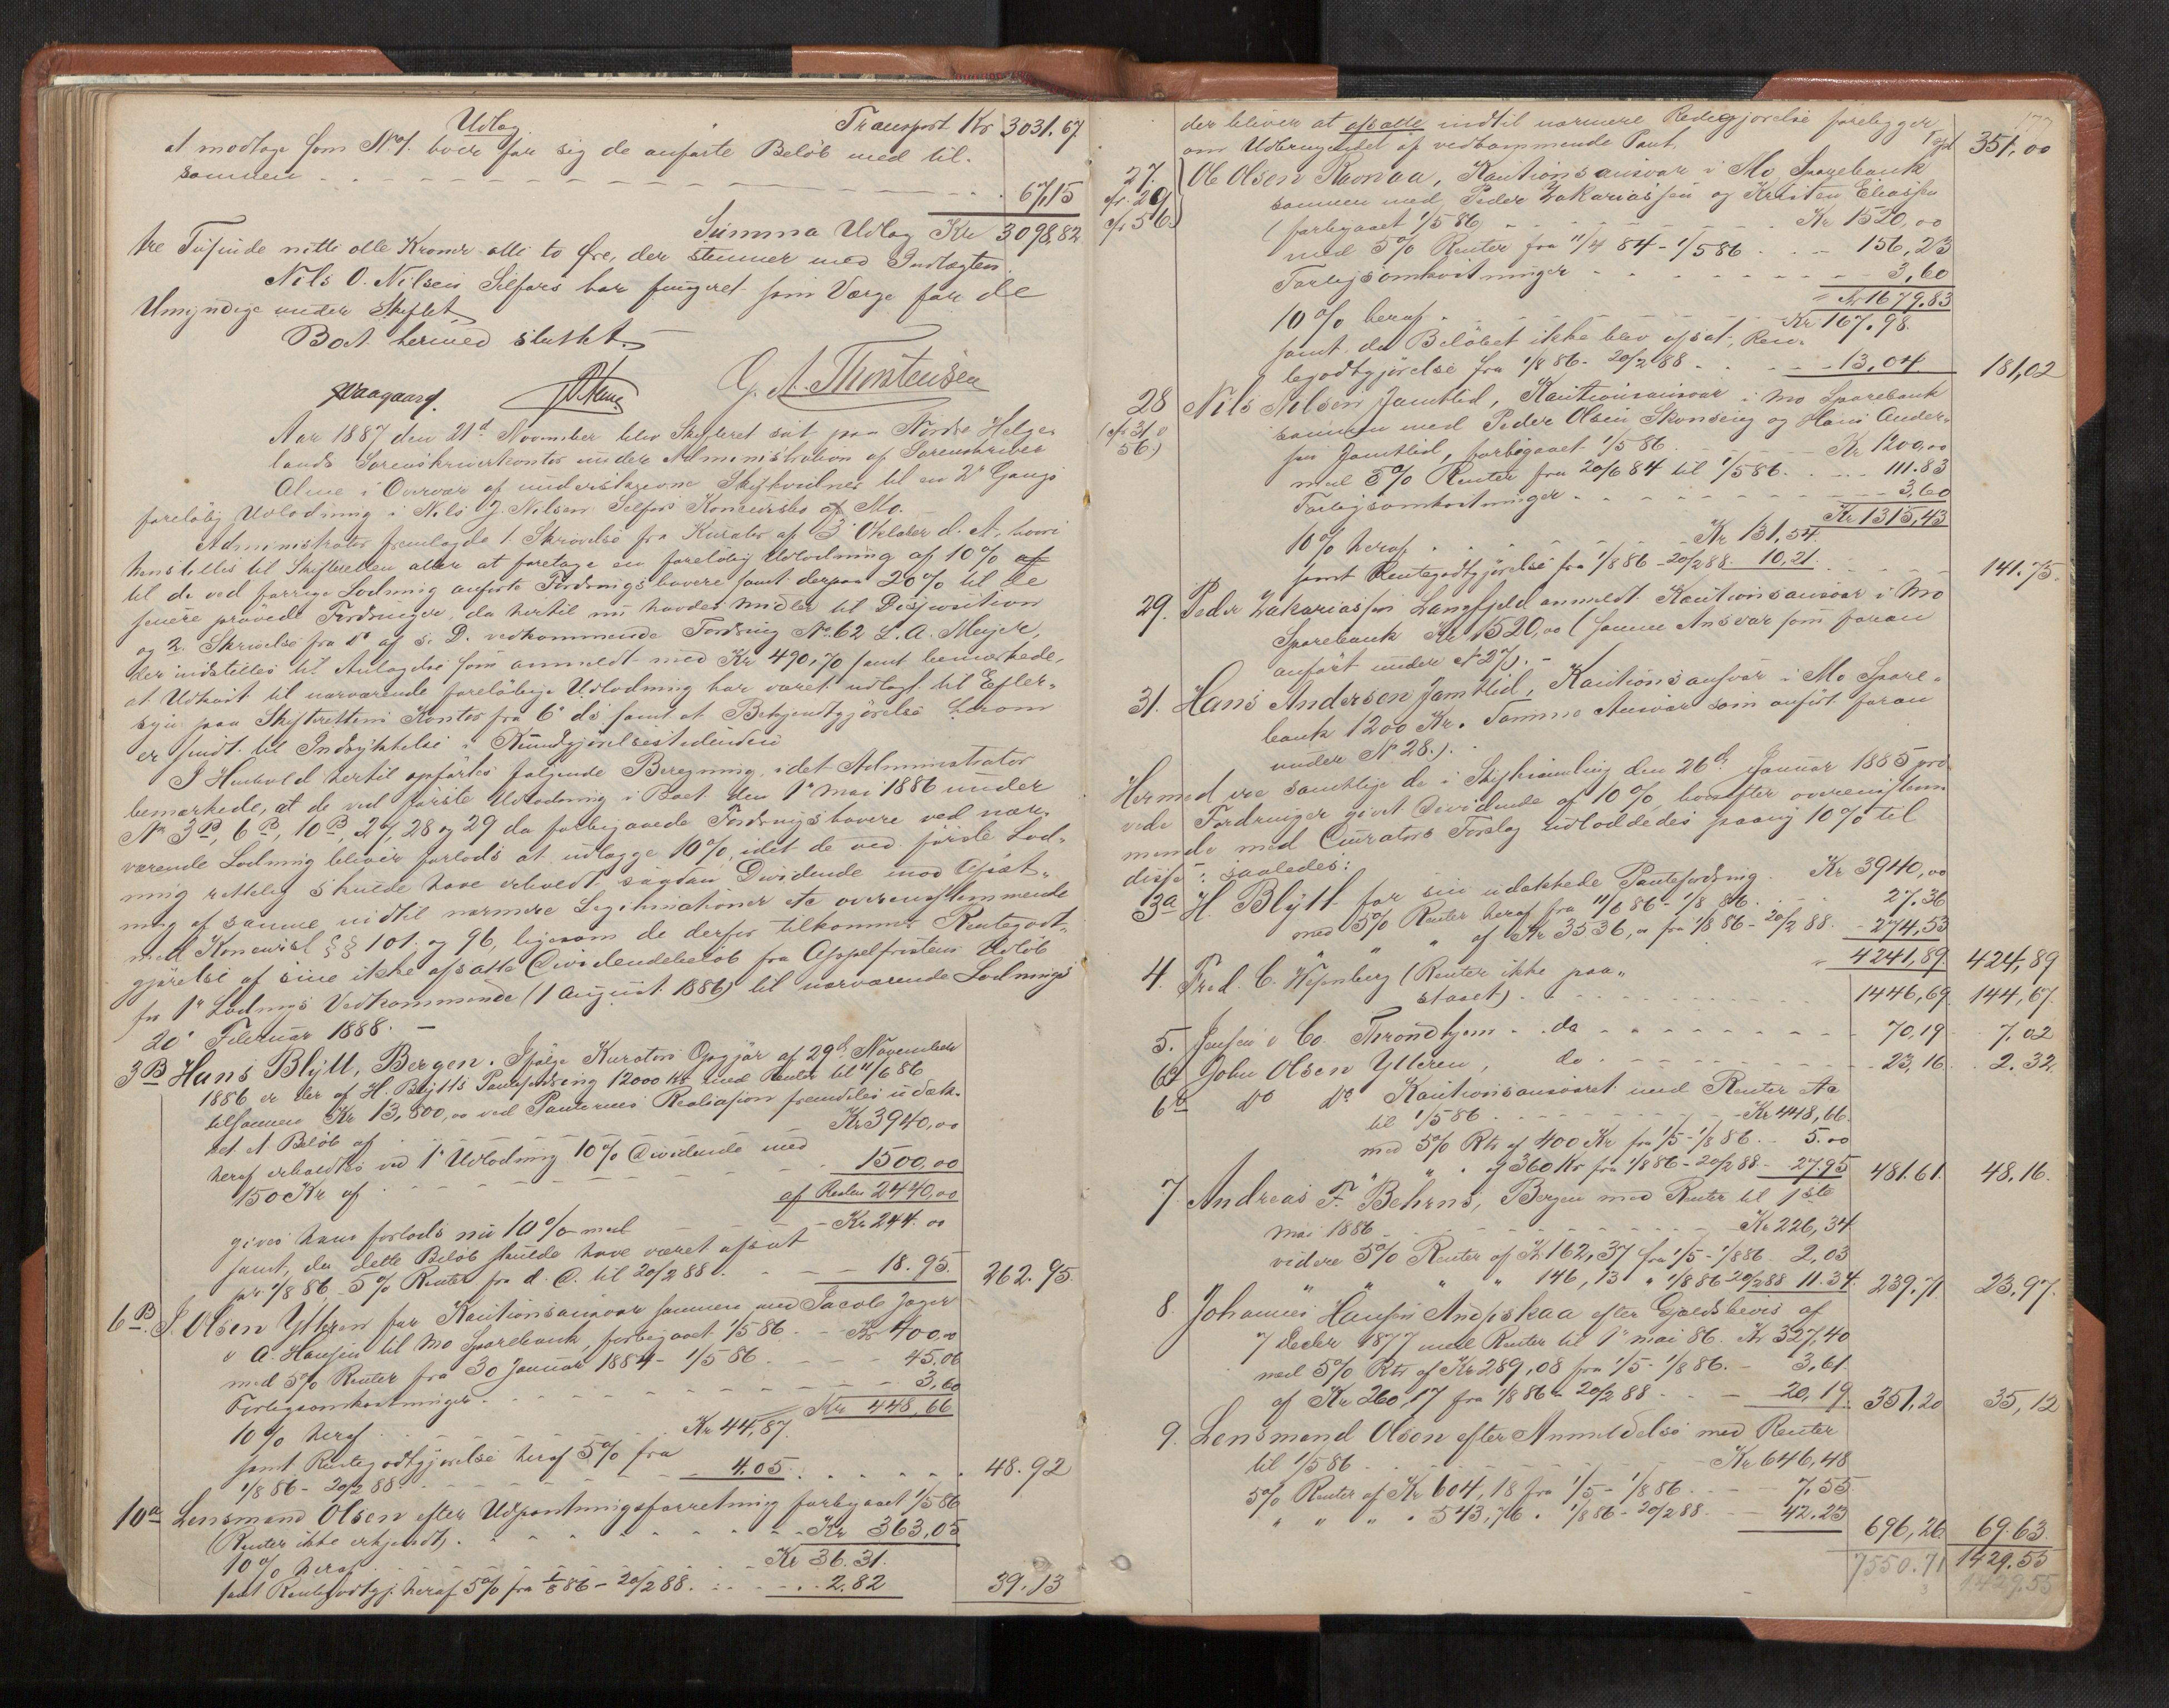 Udlæg Transport Kr 3031.67.
at modtage som No 1. hver for sig de anførte Beløb med til-
sammen 67,15
Summa Udlæg Kr 3098,82
tre Tusinde nitti otte Kroner otti to Øre, der stemmer med Indtægten.
Nils O. Nilsen Selfors har fungeret som Værge for de
Umyndige under Skiftet
Boet hermed sluttet.
G. A. Thorstensen
Aar 1887 den 21de November blev Skifteret sat paa Nordre Helge-
lands Sorenskriverkontor under Administration af Sorenskriver
Alme i Overvær af understegnede Skiftevidner til en 2den Gangs
foreløbig Udlodning i Nils J. Nilsen Selfors Konkursbo af Mo.
Administrator fremlagde 1. Skrivelse fra Kurator af 3 Oktober d. A. hvori
henstilles til Skifteretten atter at foretage en foreløbig Udlodning af 10% af
til de ved forrige Lodning anførte Fordringshavere samt derpaa 20% til de
senere prøvede Fordringer, da hertil nu havdes Midler til Disposition
og 2. Skrivelse fra do af s. D. vedkommende Fordring No 62 L. A. Meyer,
der indstilles til Antagelse som anmeldt med Kr 490,70 samt bemærkede,
at Udkast til nærværende foreløbige Udlodning har været udlagt til Efter-
syn paa Skifterettens Kontor fra 6' ds. samt at Bekjendtgjørelse herom
er sendt til Indrykkelse i Kundgjørelsestidenden
I Henhold hertil opførtes følgende Beregning, idet Administrator
bemærkede, at de ved første Udlodning i Boet den 1' Mai 1886 under
No 3B, 6B, 10B, 27, 28 og 29 da forbigaaede Fordringshavere ved nær-
værende Lodning bliver forlods at udlægge 10%, idet de ved første Lod-
ning rettelig skulde have erholdt saadan Dividende mod Afsæt-
ning af samme indtil nærmere Legitimationer etc overensstemmende
med Konkursl §§ 101 og 96, ligesom de derfor tilkommer Rentegodt-
gjørelse af sine ikke afsatte Dividendebeløb fra Appelfristens Udløb
for 1' Lodnings Vedkommende (1 August 1886) til nærværende Lodnings
20' Februar 1888. —
3B Hans Blytt, Bergen. Ifølge Kurators Opgjør af 29de November
1886 er der af H. Blytts Pantefordring 12000 Kr med Renter til 11/6 86
tilsammen Kr 13,500,00 ved Panternes Realisation fremdeles udæk-
ket et Beløb af Kr 3940,00
heraf erholdtes ved 1' Udlodning 10% Dividende med
150 Kr af 1500,00
af Resten 2440,00
gives ham forlods nu 10% med Kr 244.00
samt, da dette Beløb skulde have været afsat
pr 1/8 86 5% Renter fra d. D. til 20/2 88. 18.95. 262.95.
6B. J. Olsen Ytteren for Kautionsansvar sammen med Jacob Jager
& A. Hansen til Mo Sparebank, forbigaaet 1/5 86. Kr 400,00
med 5% Renter fra 30 Januar 1884 - 1/5 86 45.06
Forligsomkostninger. 3,60
Kr 448,66
10% heraf Kr 44,87.
samt Rentegodtgjørelse heraf 5% fra
1/8 86 - 20/2 88. 4.05. 48.92
10a Lensmand Olsen efter Udpantningsforretning forbigaaet 1/5 86
(Renter ikke erkjendt) Kr 363,05
10% heraf Kr 36.31.
samt Rentegodtgj. heraf 5% fra 1/8 86 - 20/2 88. 2.82 39.13
der bliver at afsætte indtil nærmere Redegjørelse foreligger
om Udbringendet af vedkommende Pant. Tpt 351,00
27. Ole Olsen Ravnaa, Kautionsansvar i Mo Sparebank
cfr. 29 sammen med Peder Zakariassen og Kristen Eliassen
cfr 56) (forbigaaet 1/5 86 Kr 1520,00
med 5% Renter fra 11/4 84 - 1/5 86 156,23
Forligsomkostninger 3,60
Kr 1679.83
10% heraf. Kr 167.98.
samt, da Beløbet ikke blev afsat, Ren-
tegodtgjørelse fra 1/8 86 - 20/2 88 13,04. 181,02
28 Nils Nilsen Jamtlid, Kautionsansvar i Mo Sparebank
(cfr 31 & sammen med Peder Olsen Skonseng og Hans Ander-
56.) sen Jamtlid, forbigaaet 1/5 86 Kr 1200,00
med 5% Renter fra 20/6 84 til 1/5 86. 111.83
Forligsomkostninger 3,60
Kr 1315,43
10% heraf Kr 131,54.
samt Rentegodtgjørelse fra 1/8 86 - 20/2 88. 10,21. 141.75.
29. Peder Zakariassen Langfjeld anmeldt Kautionsansvar i Mo
Sparebank Kr 1520,00 (samme Ansvar som foran
anført under No 27). -
31. Hans Andersen Jamtlid, Kautionsansvar i Mo Spare-
bank 1200 Kr. Samme Ansvar som anført foran
under No 28.).
Hermed ere samtlige de i Skiftesamling den 26de Januar 1885 prø-
vede Fordringer givet Dividende af 10%, hvorefter overensstem-
mende med Curators Forslag udloddedes paany 10% til
disse saaledes:
3a H. Blytt for sin udækkede Pantefordring Kr 3940,00
med 5% Renter heraf fra 11/6 86 - 1/8 86 27.36
" " " af Kr 3536,00 fra 1/8 86 - 20/2 88. 274,53
4241,89 424,89
4. Fred. C. (Renter ikke paa-
staaet). 1446,69 144,67.
5. Jensen & Co. Throndhjem da 70,19 7.02
6a John Olsen Ytteren, do 23,16 2.32.
6b do do Kautionsansvaret med Renter etc
til 1/5 86 Kr 448,66.
med 5% Rtr af 400 Kr fra 1/5 - 1/8 86. 5.00
" " " af 360 Kr fra 1/8 86 - 20/2 88 27.95 481.61. 48.16.
7. Andreas F. Behrens, Bergen med Renter til 1ste
Mai 1886 Kr 226,34
videre 5% Renter af Kr 162,37 fra 1/5 - 1/8 86 2,03
" " " " 146,13 " 1/8 86 20/2 88 11.34. 239.71 23.97.
8. Johannes Hansen Andfiskaa efter Gjældsbevis af
7 Decbr 1877 med Renter til 1' Mai 86. Kr 327,40
med 5% Rtr af Kr 289,08 fra 1/5 - 1/8 86. 3,61.
af Kr 260,17 fra 1/8 86 - 20/2 88 20,19 351,20 35,12
9. Lensmand Olsen efter Anmeldelse med Renter
til 1/5 86 Kr 646,48
5% Renter af Kr 604,18 fra 1/5 - 1/8 86 7,55
" " " " 543,76 " 1/8 86 - 20/2 88 42.23
696,26 69.63.
7550.71 1429.55
1429.55